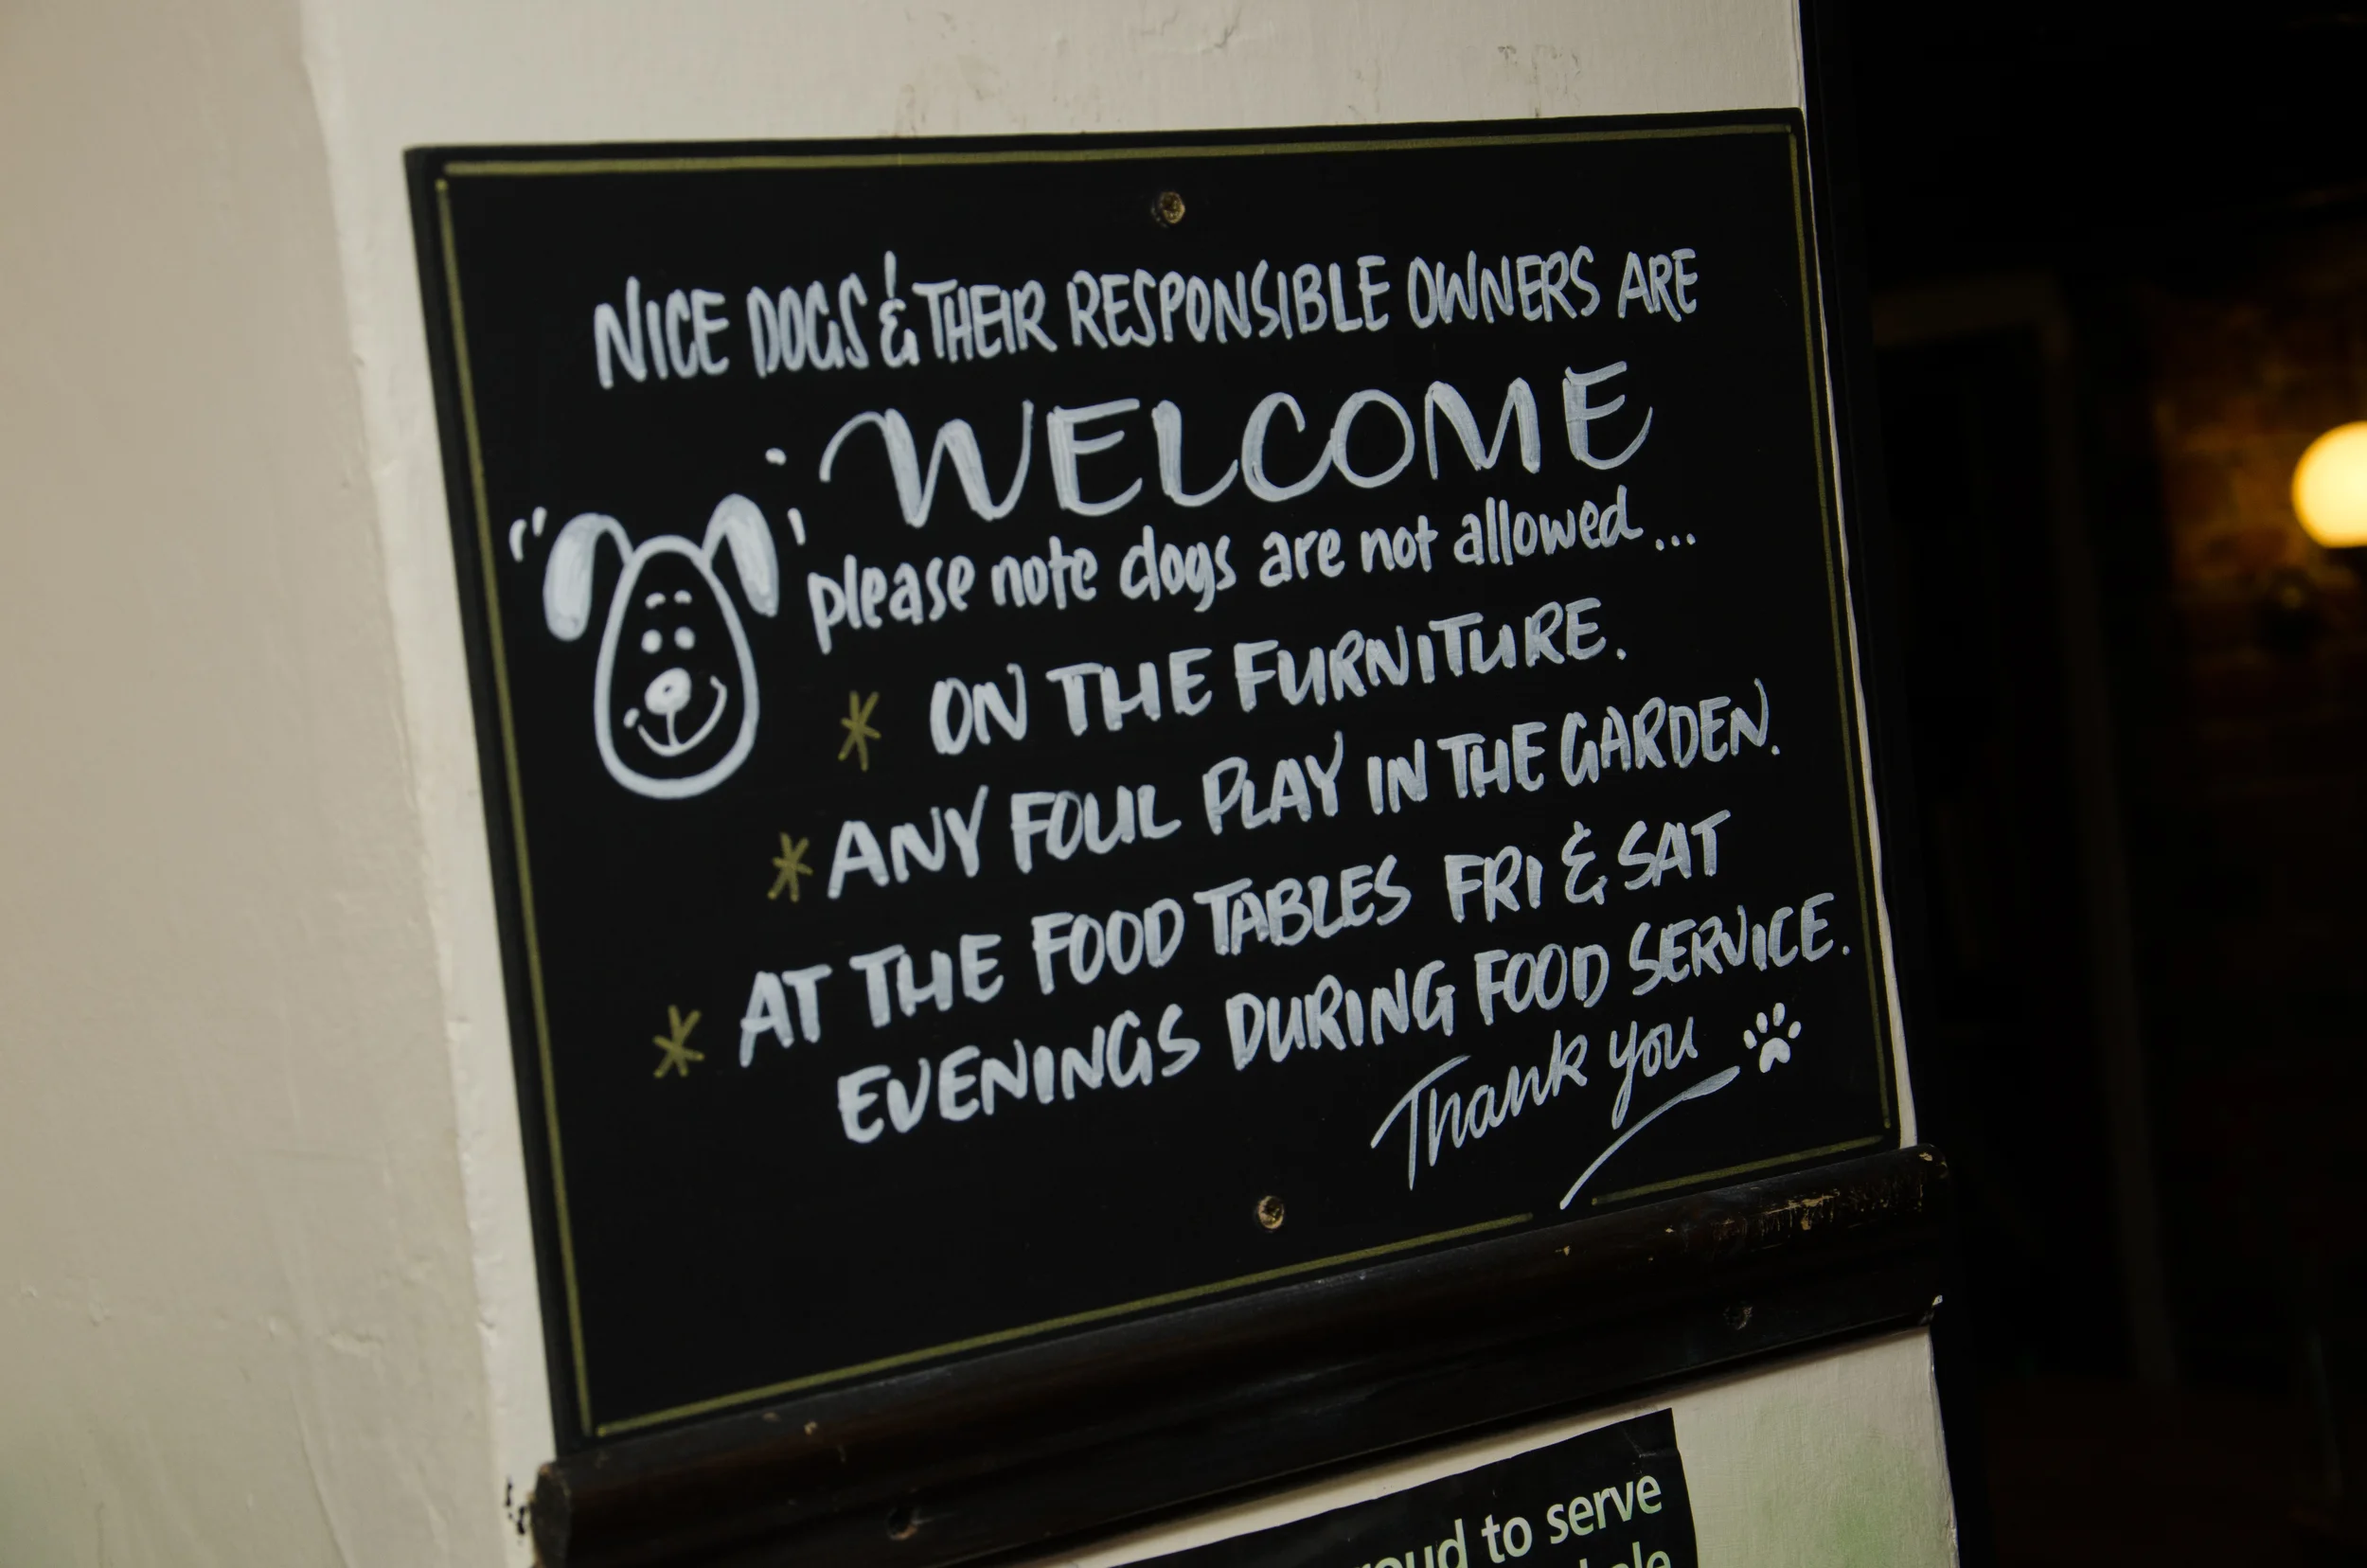 NICE DOGS & THEIR RESPONSIBLE OWNERS ARE
WELCOME
please note dogs are not allowed...
* ON THE FURNITURE.
* ANY FOUL PLAY IN THE GARDEN.
* AT THE FOOD TABLES FRI & SAT
EVENINGS DURING FOOD SERVICE.
Thank you
to serve